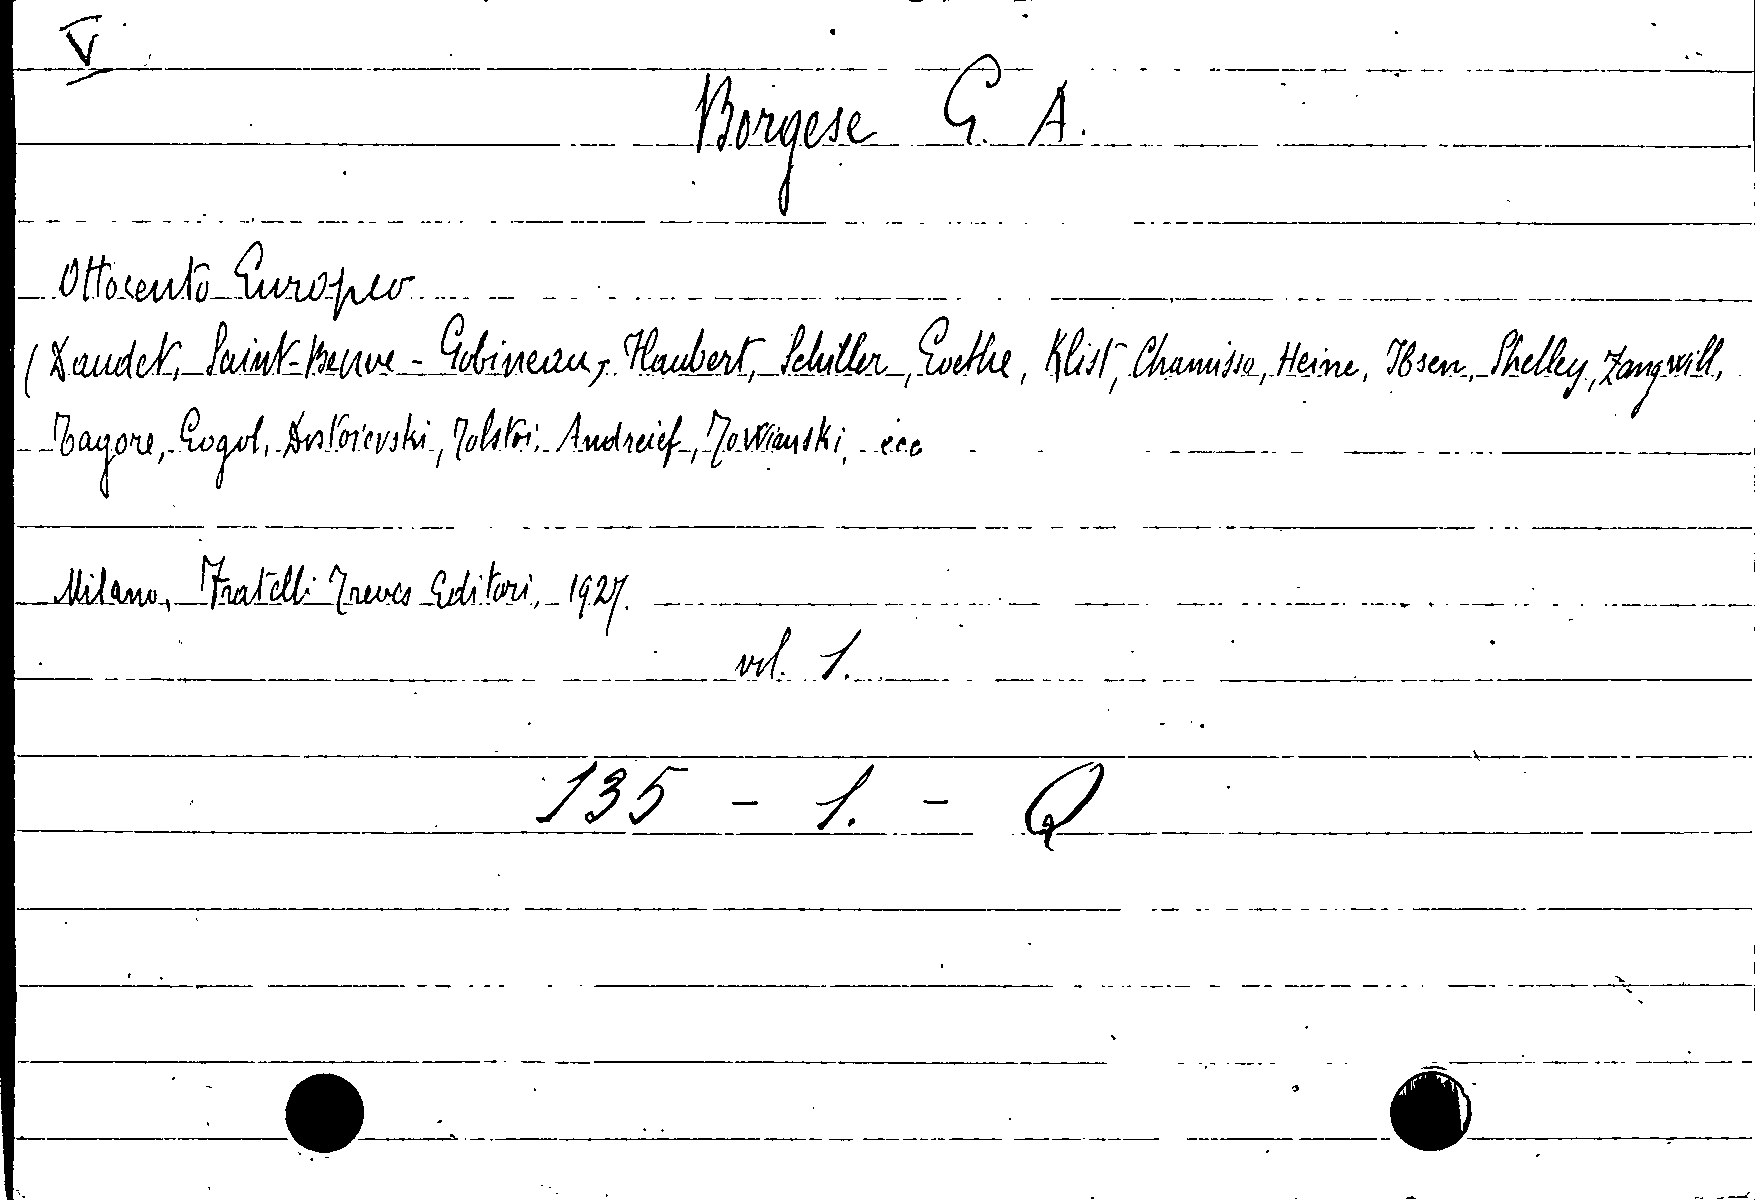 V
Borgese G. A.
Ottocento Europeo
(Daudet, Saint-Beuve - Gobineau, Flaubert, Schiller, Goethe, Klist, Chamisso, Heine, Ibsen, Shelley, Zangwill,
Tagore, Gogol, Dostoievski, Tolstoi, Andreief, Towianski, ecc
Milano, Fratelli Treves Editori, 1927.
vol. 1.
135 - 1. - Q